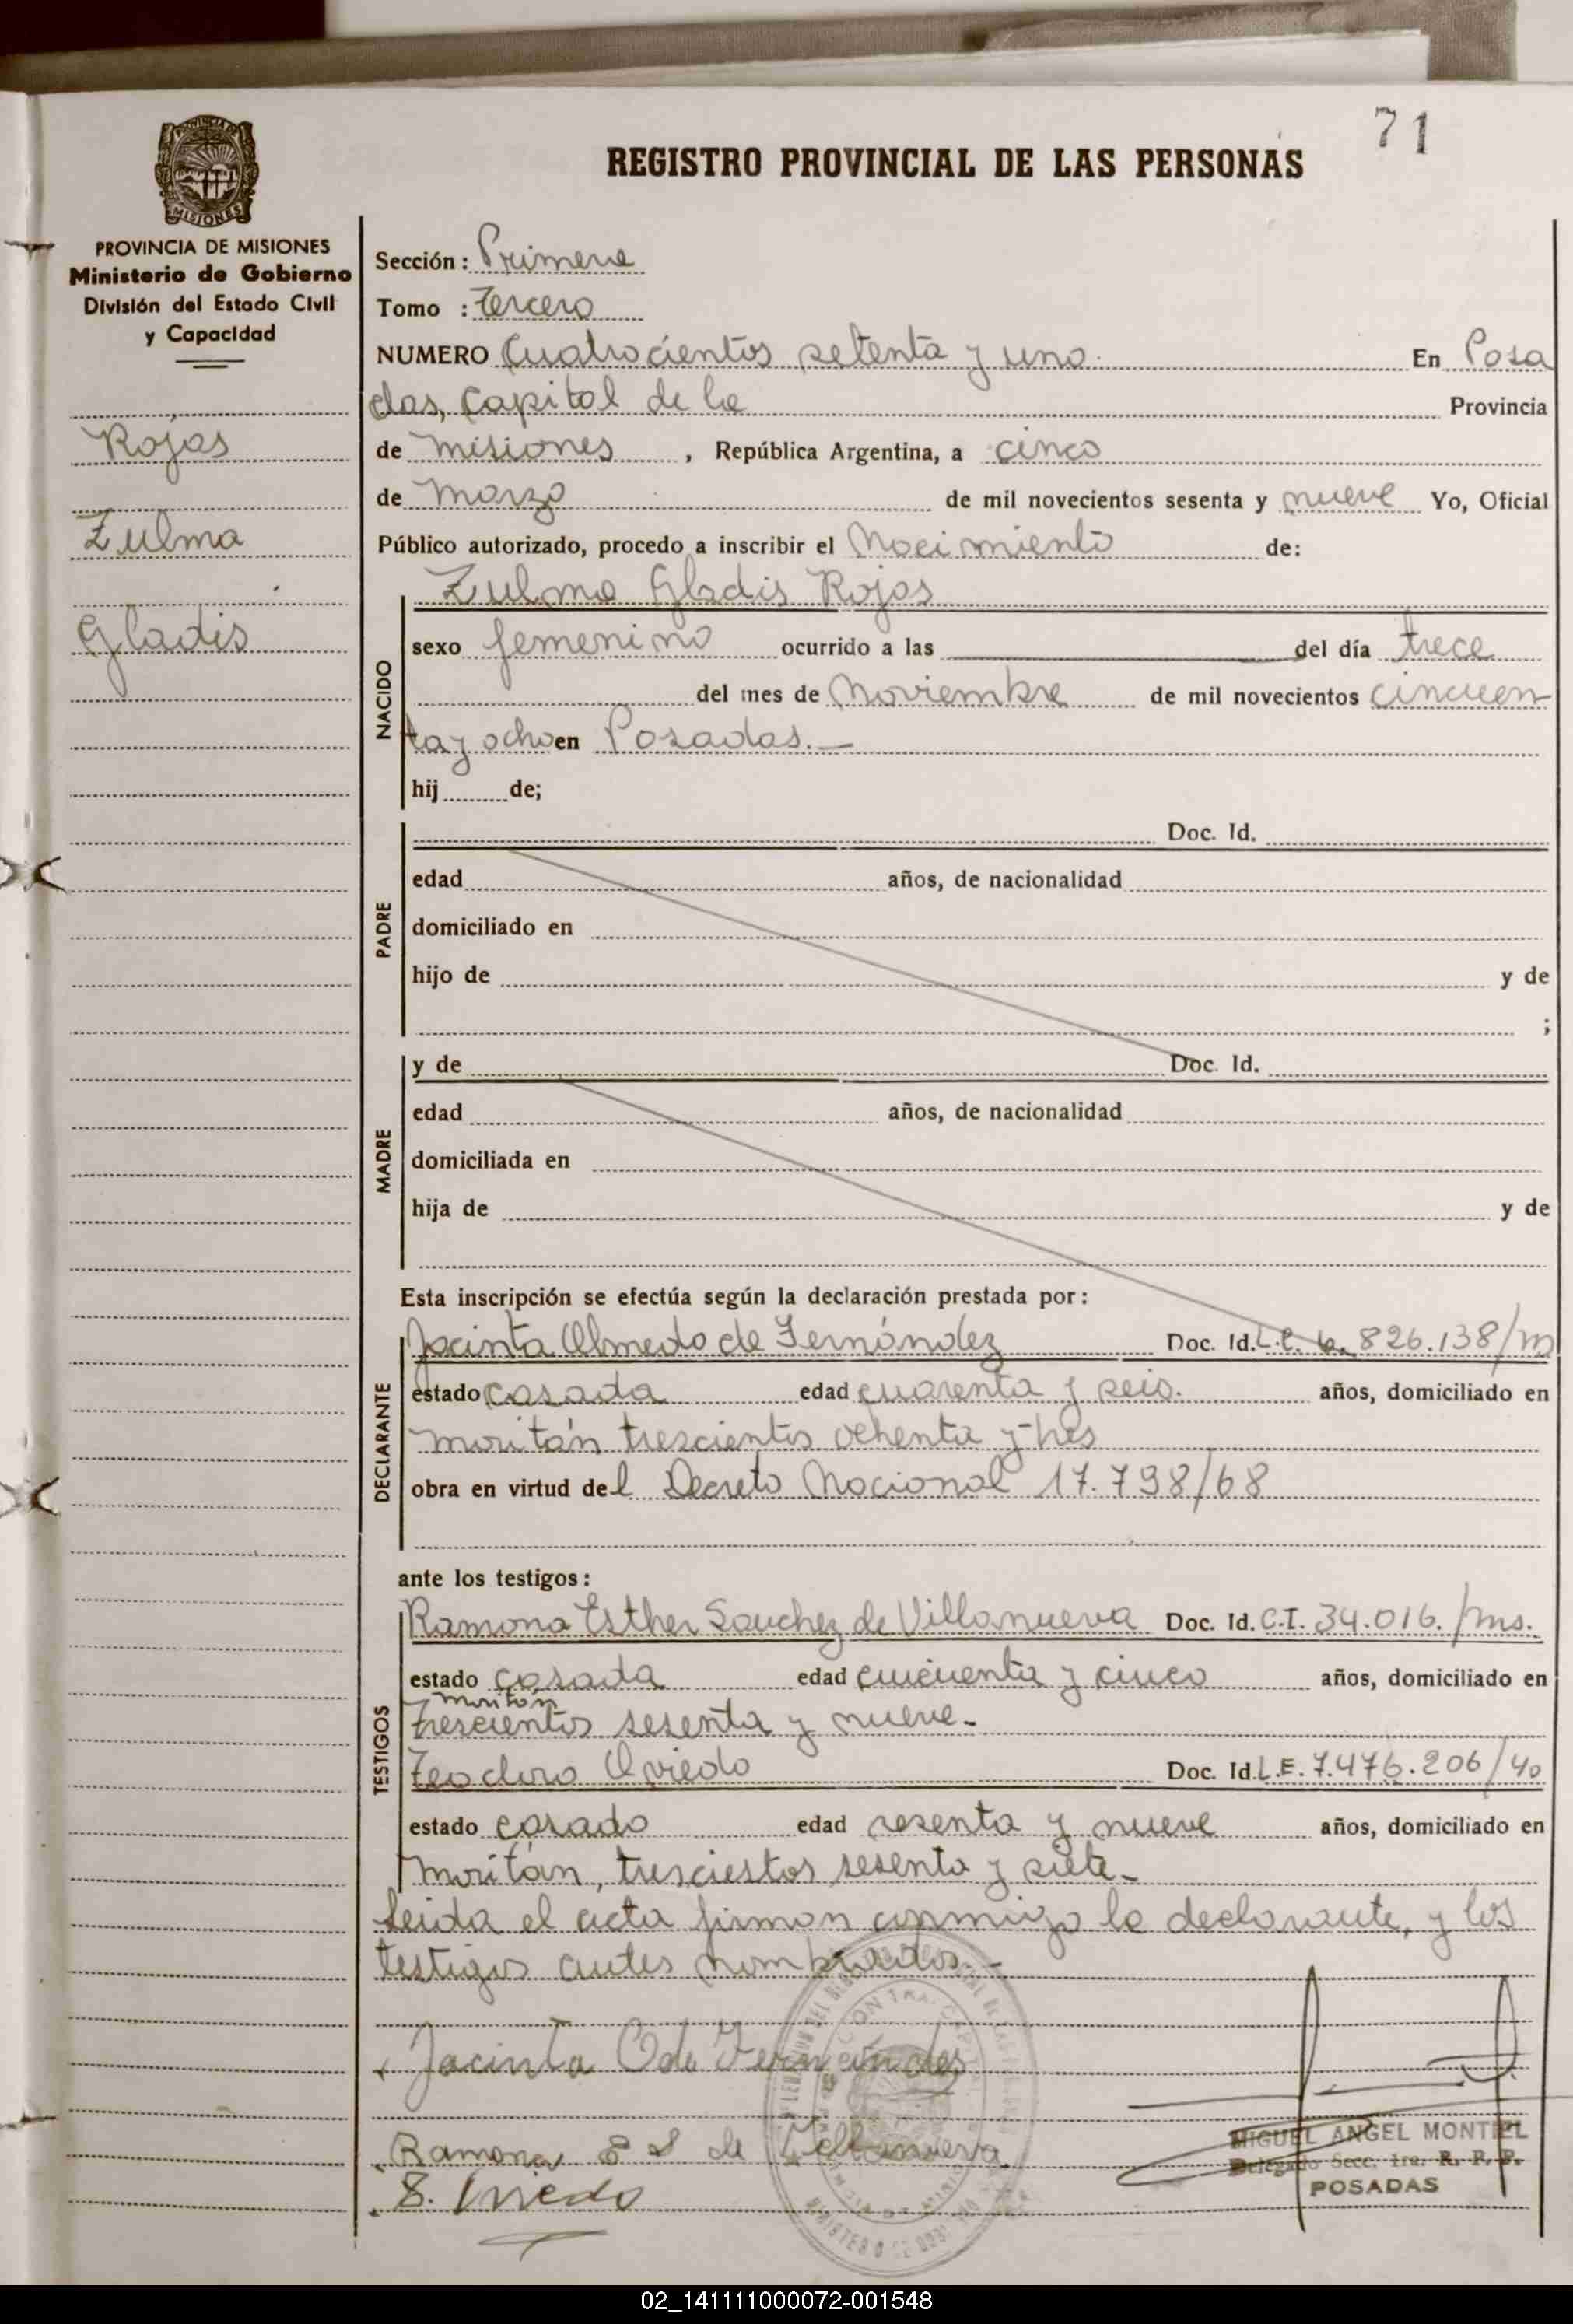 71
REGISTRO PROVINCIAL DE LAS PERSONAS
PROVINCIA DE MISIONES
Ministerio de Gobierno
División del Estado Civil
y Capacidad
Rojas
Zulma
Gladis
Sección: Primera
Tomo : Tercero
NUMERO Cuatrocientos setenta y uno. En Posa
das, Capital de la Provincia
de Misiones, República Argentina, a cinco
de Marzo de mil novecientos sesenta y nueve Yo, Oficial
Público autorizado, procedo a inscribir el Nacimiento de:
Zulma Gladis Rojas
NACIDO
sexo femenino ocurrido a las del día trece
del mes de Noviembre de mil novecientos cincuen
ta y ocho en Posadas.—
hij de;
PADRE
Doc. Id.
edad años, de nacionalidad
domiciliado en
hijo de y de
;
MADRE
y de Doc. Id.
edad años, de nacionalidad
domiciliada en
hija de y de
Esta inscripción se efectúa según la declaración prestada por:
DECLARANTE
Jacinta Olmedo de Fernández Doc. Id. L.C. 826.138/m
estado casada edad cuarenta y seis. años, domiciliado en
Moritán trescientos ochenta y tres
obra en virtud del Decreto Nacional 17.798/68
ante los testigos:
TESTIGOS
Ramona Esther Sanchez de Villanueva Doc. Id. C.I. 34.016./ms.
estado casada edad cincuenta y cinco años, domiciliado en
Moritán
Trescientos sesenta y nueve.
Teodoro Oviedo Doc. Id. L.E. 7.476.206/40
estado casado edad sesenta y nueve años, domiciliado en
Moritán, tresciestos sesenta y siete.
Leida el acta firman conmigo la declarante, y los
testigos antes nombrados.—
Jacinta O de Fernandes
Ramona E S de Villanueva
Oviedo
MIGUEL ANGEL MONTIEL
Delegado Secc. 1ra. R. P. P.
POSADAS
02_141111000072-001548